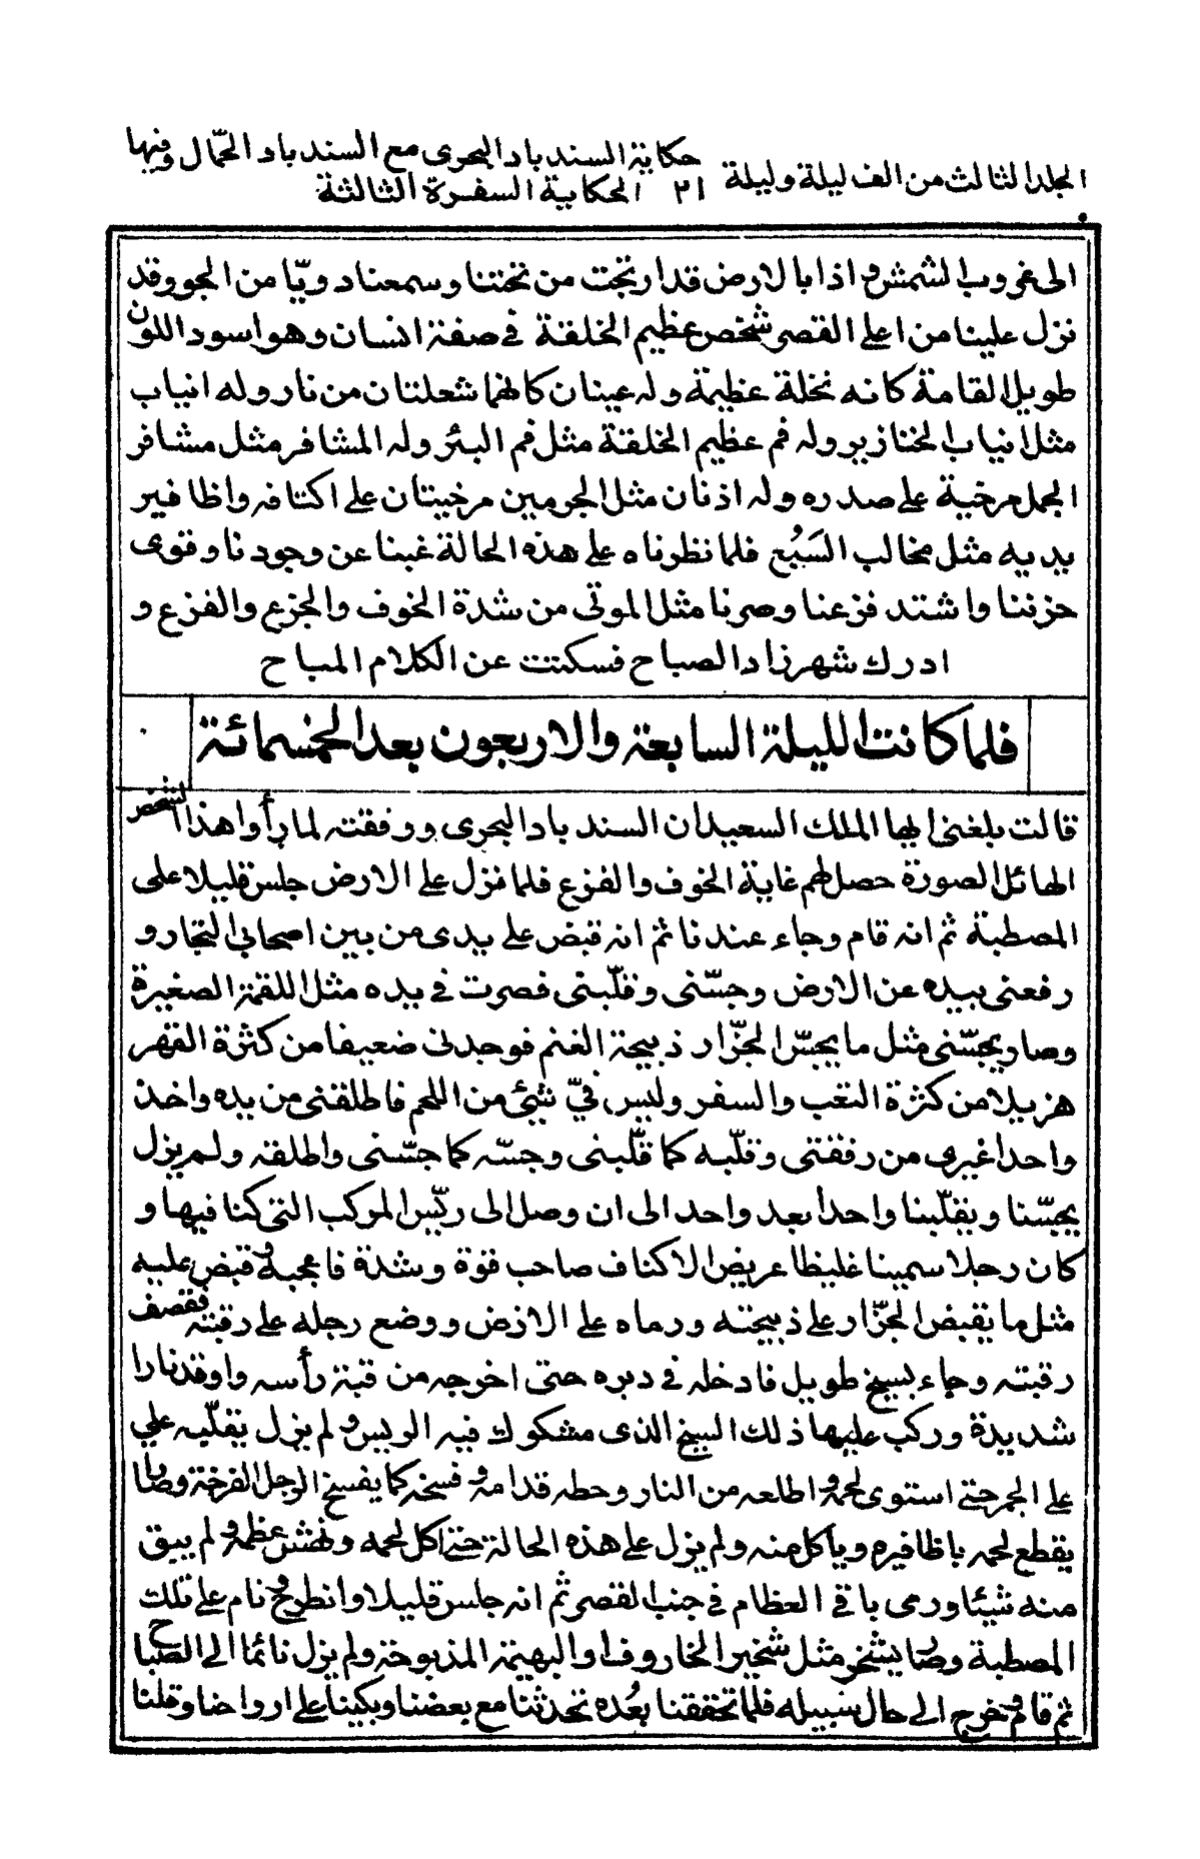 المجلد الثالث من الف ليلة وليلة ٢١ حكاية السندباد البحرى مع السندباد الحمّال وفيها
الحكاية السفرة الثالثة
الى غروب الشمش و اذا بالارض قد ارتجت من تحتنا وسمعنا دويّا من الجو وقد
نزل علينا من اعلى القصر شخص عظيم الخلقة فى صفة انسان وهو اسود اللون
طويل القامة كانه نخلة عظيمة وله عينان كانهما شعلتان من نار وله انياب
مثل انياب الخنازير وله فم عظيم الخلقة مثل فم البئر وله المشافر مثل مشافر
الجمل مرخية على صدره وله اذنان مثل الجرمين مرخيتان على اكتافه واظافير
يديه مثل مخالب السَبُع فلما نظرناه على هذه الحالة غبنا عن وجودنا وقوى
حزننا واشتد فزعنا وصرنا مثل الموتى من شدة الخوف والجزع والفزع و
ادرك شهرزاد الصباح فسكتت عن الكلام المباح
فلما كانت الليلة السابعة والاربعون بعد الخمسمائة
قالت بلغنى ايها الملك السعيد ان السندباد البحرى ورفقته لما رأوا هذا الشخص
الهائل الصورة حصل لهم غاية الخوف والفزع فلما نزل على الارض جلس قليلا على
المصطبة ثم انه قام وجاء عندنا ثم انه قبض على يدى من بين اصحابى التجار و
رفعنى بيده عن الارض وجسّنى وقلّبنى فصرت فى يده مثل اللقمة الصغيرة
وصار يجسّنى مثل ما يجسّ الجزّار ذبيحة الغنم فوجدنى ضعيفا من كثرة القهر
هزيلا من كثرة التعب والسفر وليس فيّ شئ من اللحم فاطلقنى من يده واخذ
واحدا غيرى من رفقتى وقلّبه كما قلّبنى وجسّه كما جسّنى واطلقه ولم يزل
يجسّنا ويقلّبنا واحدا بعد واحد الى ان وصل الى ريّس المركب التى كنا فيها و
كان رجلا سمينا غليظا عريض الاكتاف صاحب قوة وشدة فاعجبه و قبض عليه
مثل ما يقبض الجزّار على ذبيحته ورماه على الارض ووضع رجله على رقبته فقصف
رقبته وجاء بسيخ طويل فادخله فى دبره حتى اخرجه من قبة رأسه واوقد نارا
شديدة وركب عليها ذلك السيخ الذى مشكوك فيه الريس و لم يزل يقلّبه على
على الجمر حتى استوى لحمه و اطلعه من النار وحطه قدامه و فسخه كما يفسخ الرجل الفرخة وصار
يقطع لحمه باظافيره وياكل منه ولم يزل على هذه الحالة حتى اكل لحمه ونهش عظمه و لم يبق
منه شيئا ورمى باقى العظام فى جنب القصر ثم انه جلس قليلا وانطرح و نام على تلك
المصطبة وصار يشخر مثل شخير الخاروف او البهيمة المذبوحة ولم يزل نائما الى الصباح
ثم قام و خرج الى حال سبيله فلما تحققنا بعُده تحدثنا مع بعضنا وبكينا على ارواحنا وقلنا